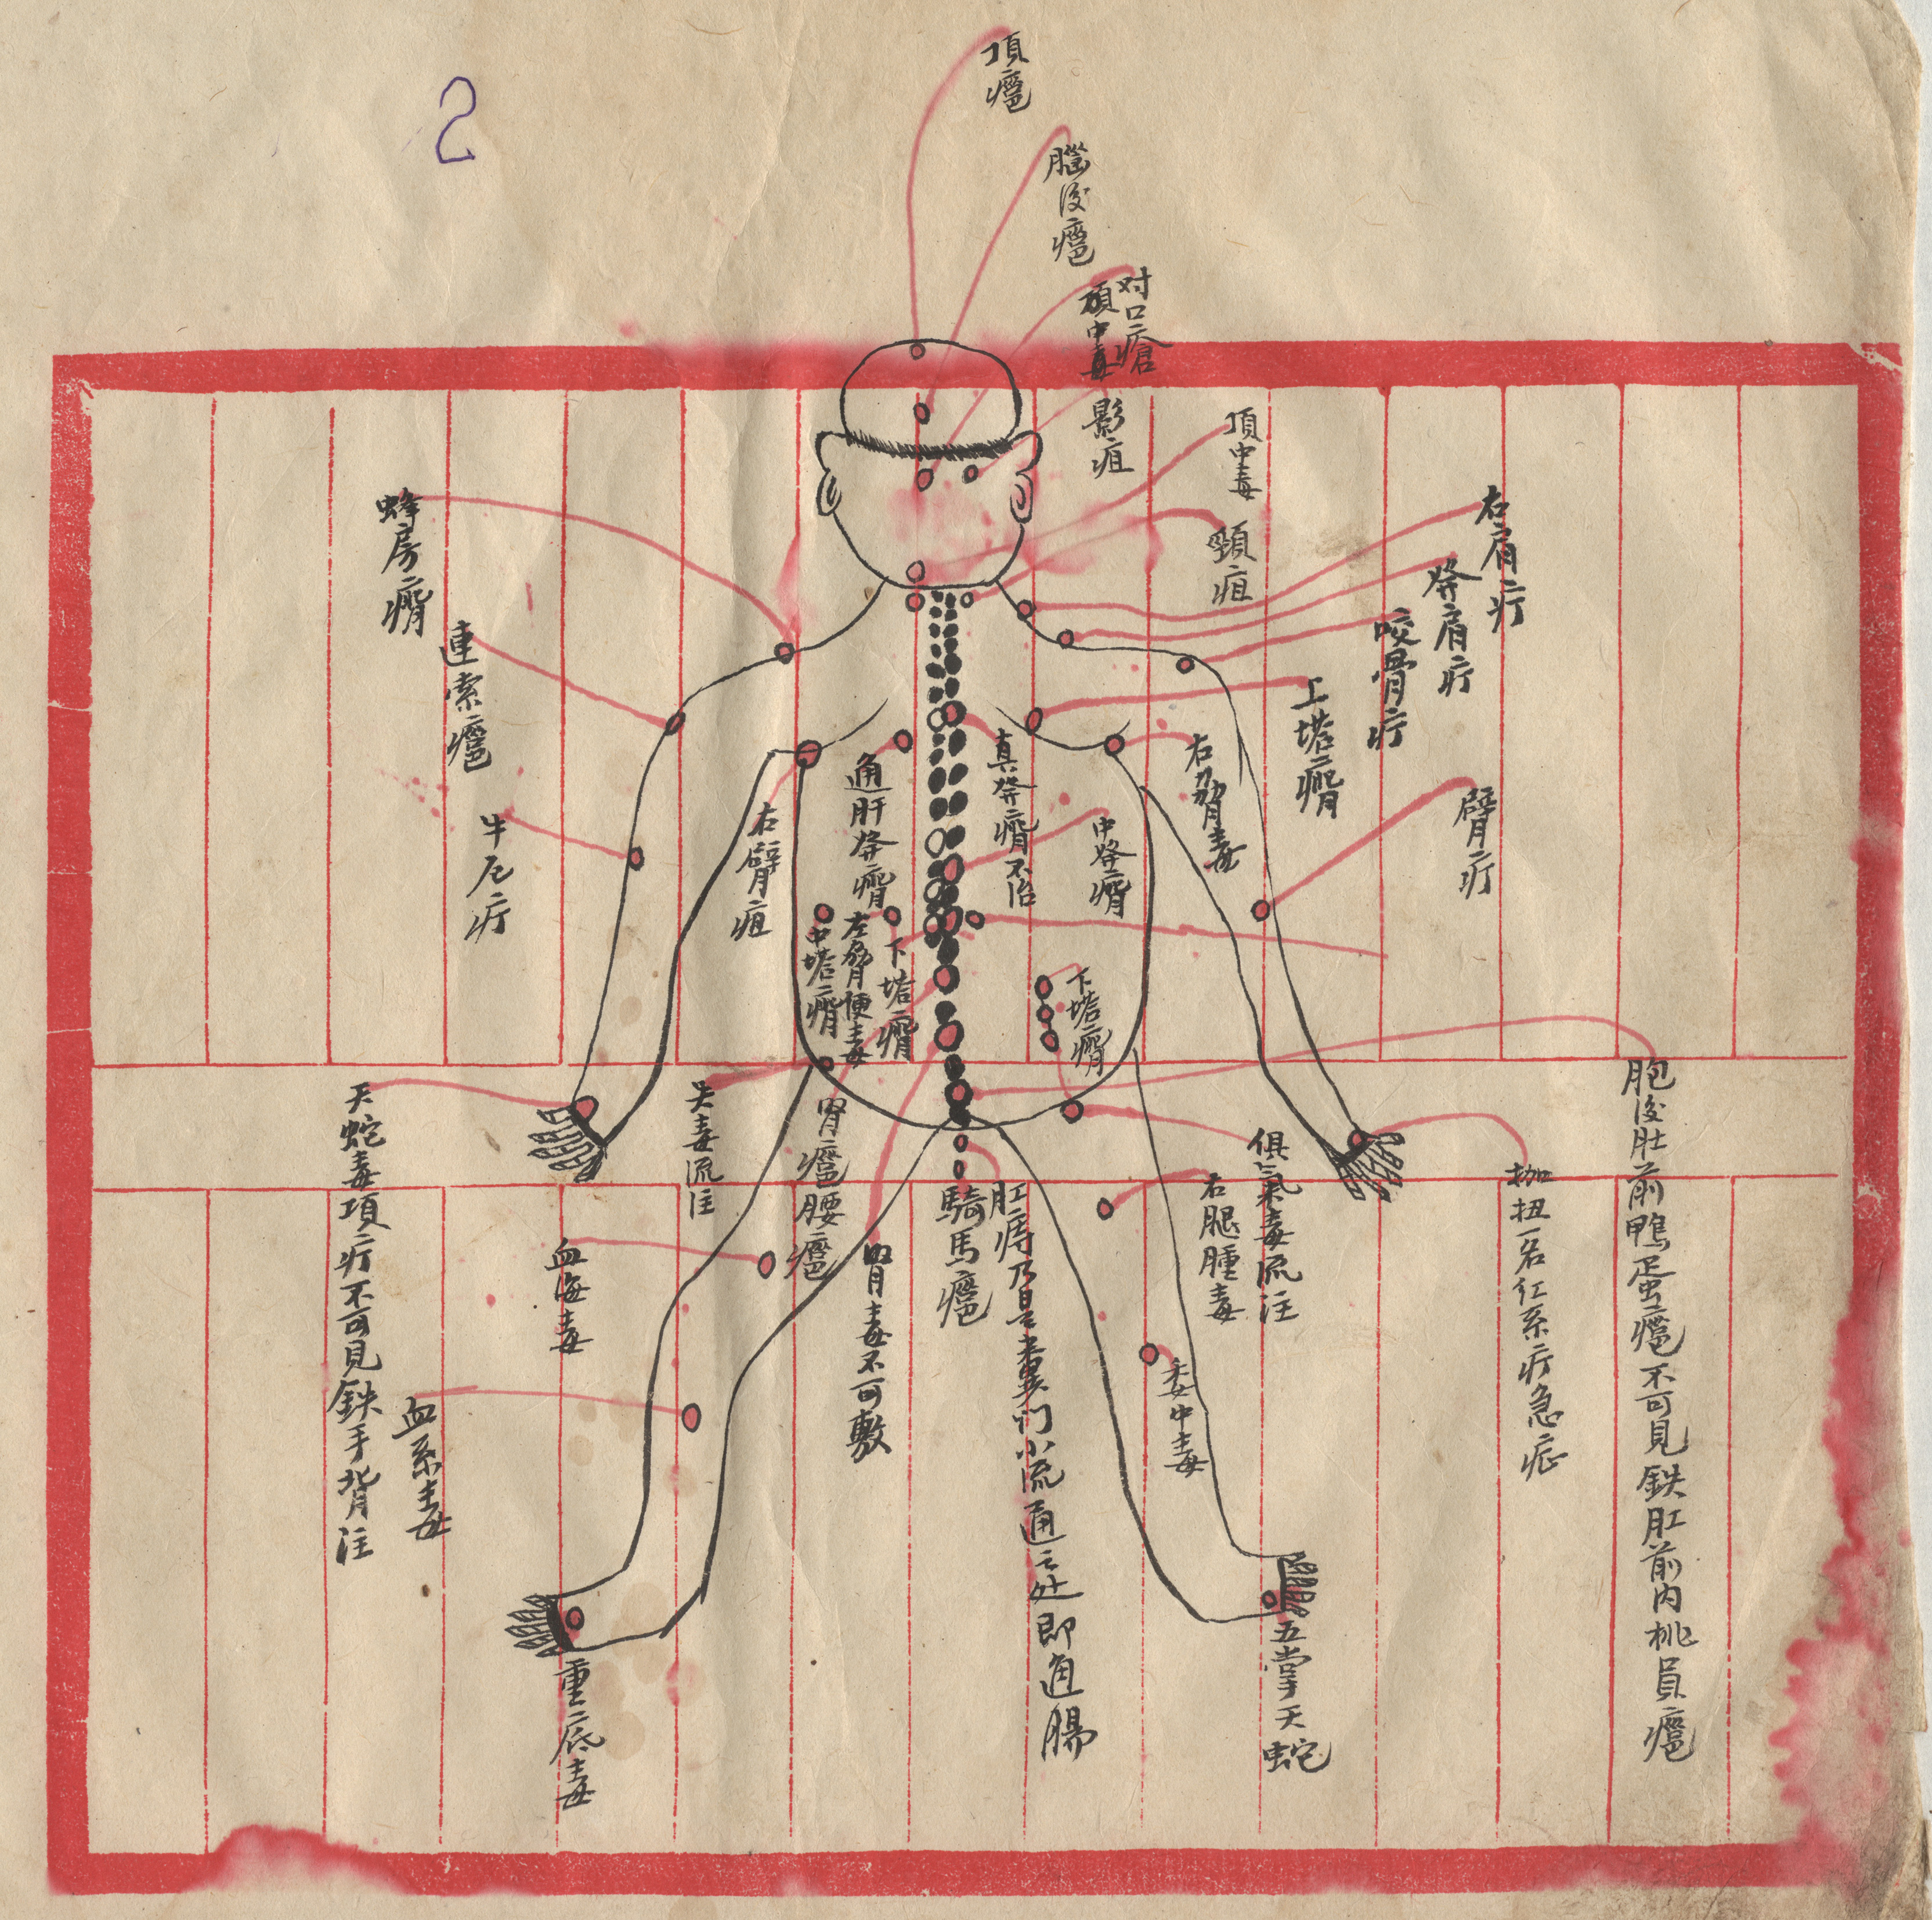 2
頂癰
腦後癰
对口瘡
項中毒
影疽
頂中毒
頸疽
右肩疔
發肩疔
咬骨疔
上塔癰
臂疔
右脅毒
中發癰
真發癰不治
通肝發癰
右臂疽
蜂房癰
連索癰
牛尼疔
左脅便毒
中塔癰
下塔癰
下塔癰
胞後肚前鴨蛋癰不可見鉄肛前内桃員癰
扭一名红系疔急症
俱氣毒流注
右腿腫毒
委中毒
五掌天蛇
肛痔乃是糞门小流通之处即通腸
騎馬癰
腎毒不可敷
腎癰腰癰
毒流注
血海毒
血系毒
天蛇毒項疔不可見鉄手背注
重底毒